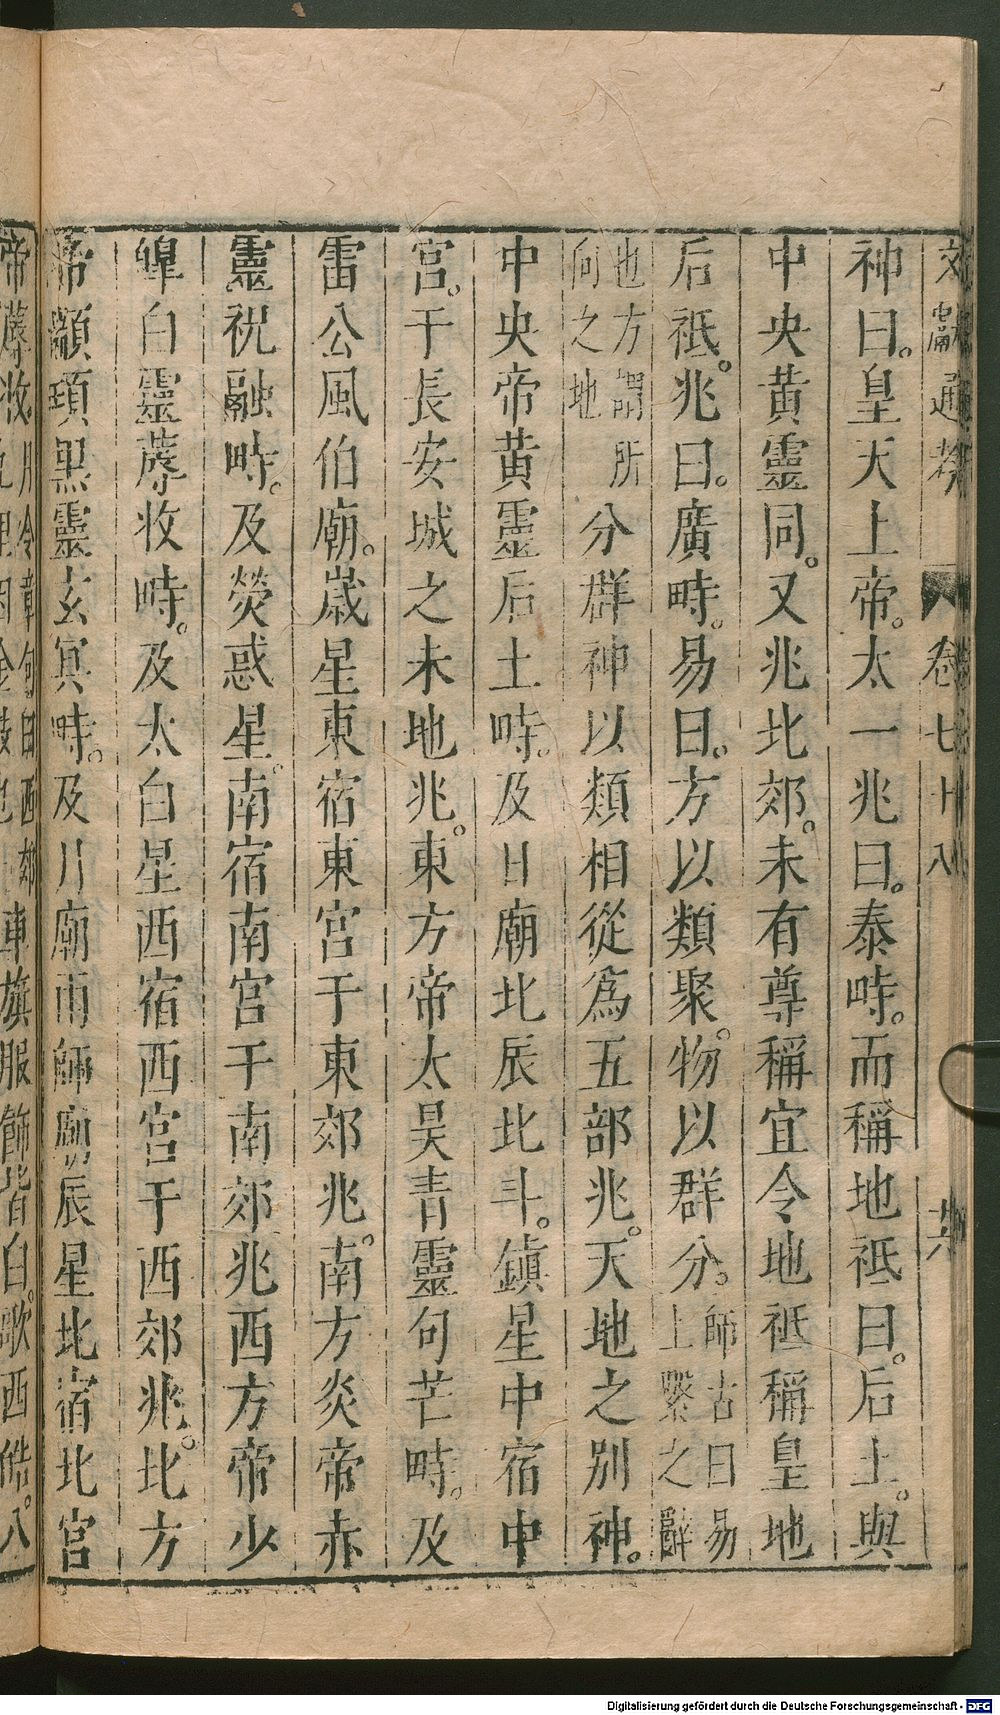 文獻通考 卷七十八
神曰。皇天上帝。太一兆曰。泰畤。而稱地祇曰。后土。與
中央黃靈同。又兆北郊。未有尊稱宜令地祇稱皇地
后祇。兆曰。廣畤。易曰。方以類聚。物以群分。師古曰易上繫之辭
也方謂所向之地分群神以類相從爲五部兆。天地之別神。
中央帝黃靈后土畤。及日廟北辰北斗。鎮星中宿中
宮。于長安城之未地兆。東方帝太昊青靈句芒畤。及
雷公風伯廟。歲星東宿東宮于東郊兆。南方炎帝赤
靈祝融畤。及熒惑星。南宿南宮于南郊兆西方帝少
皥白靈蓐收畤。及太白星西宿西宮于西郊兆。北方
帝顓頊黑靈玄冥畤。及月廟雨師廟辰星北宿北宮
帝蓐收月令章句曰西郊九里因金數也車旗服飾皆白。歌西皓。八
Digitalisierung gefördert durch die Deutsche Forschungsgemeinschaft - DFG